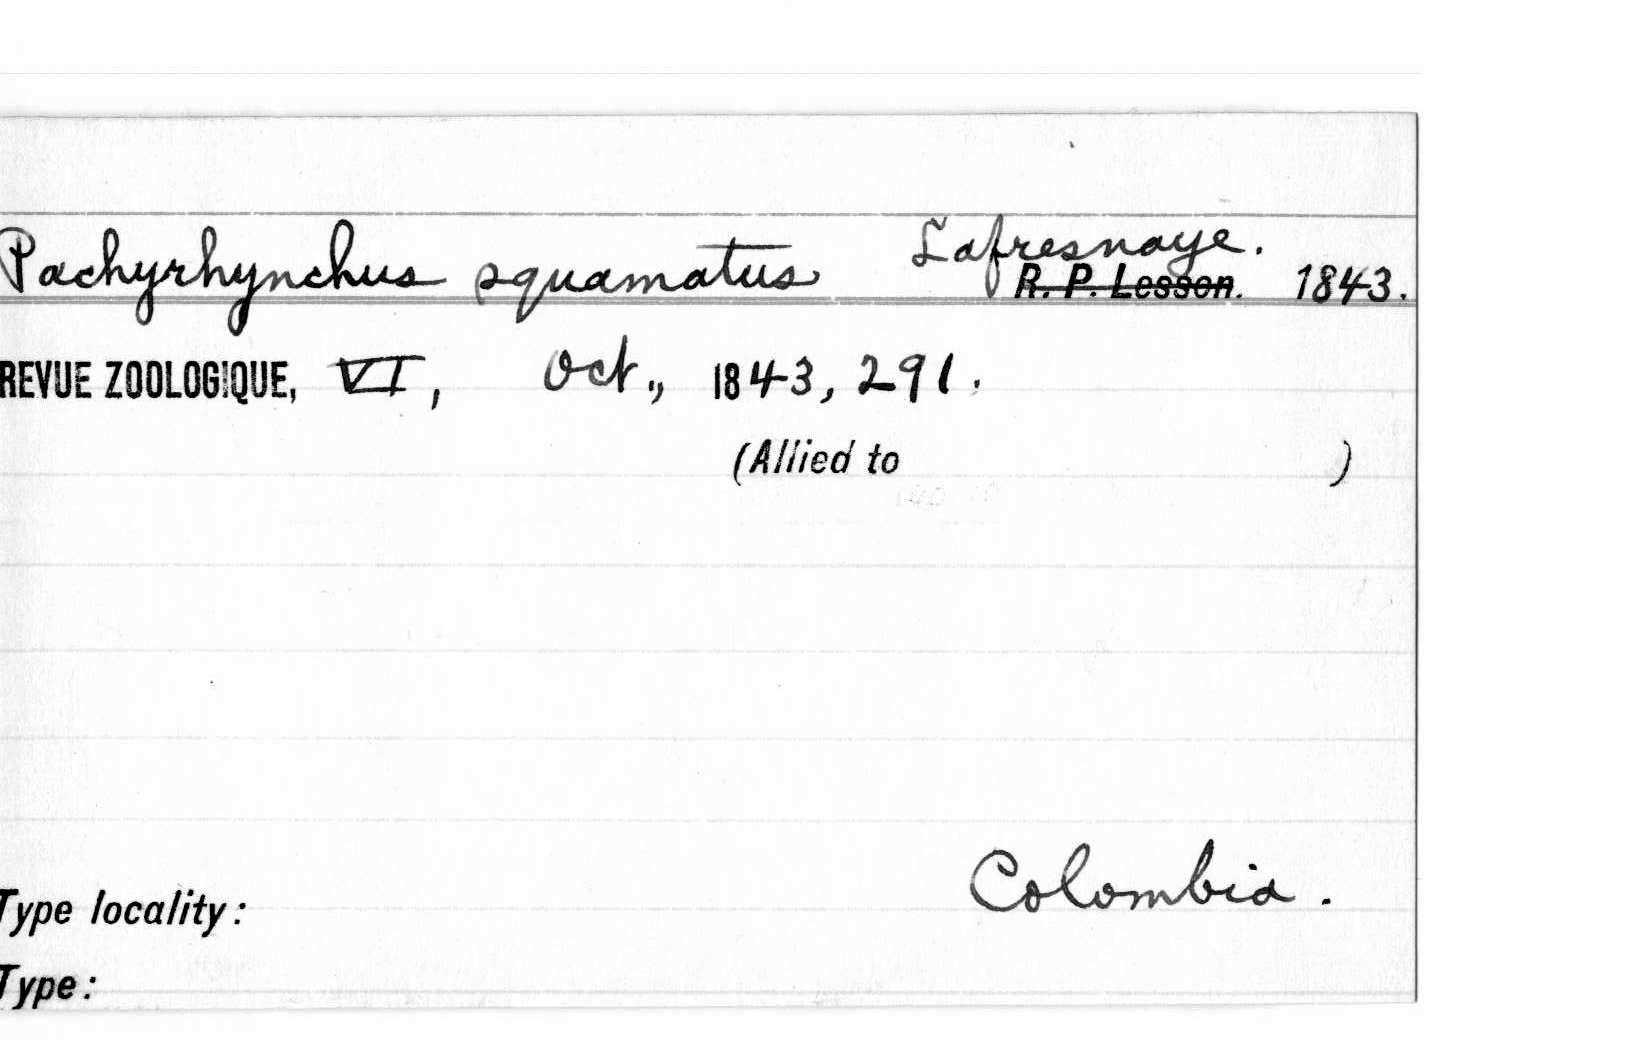 Pachyrhynchus squamatus Lafresnaye.
R. P. Lesson. 1843.
REVUE ZOOLOGIQUE, VI, Oct., 1843, 291.
(Allied to )
Colombia.
Type locality:
Type: